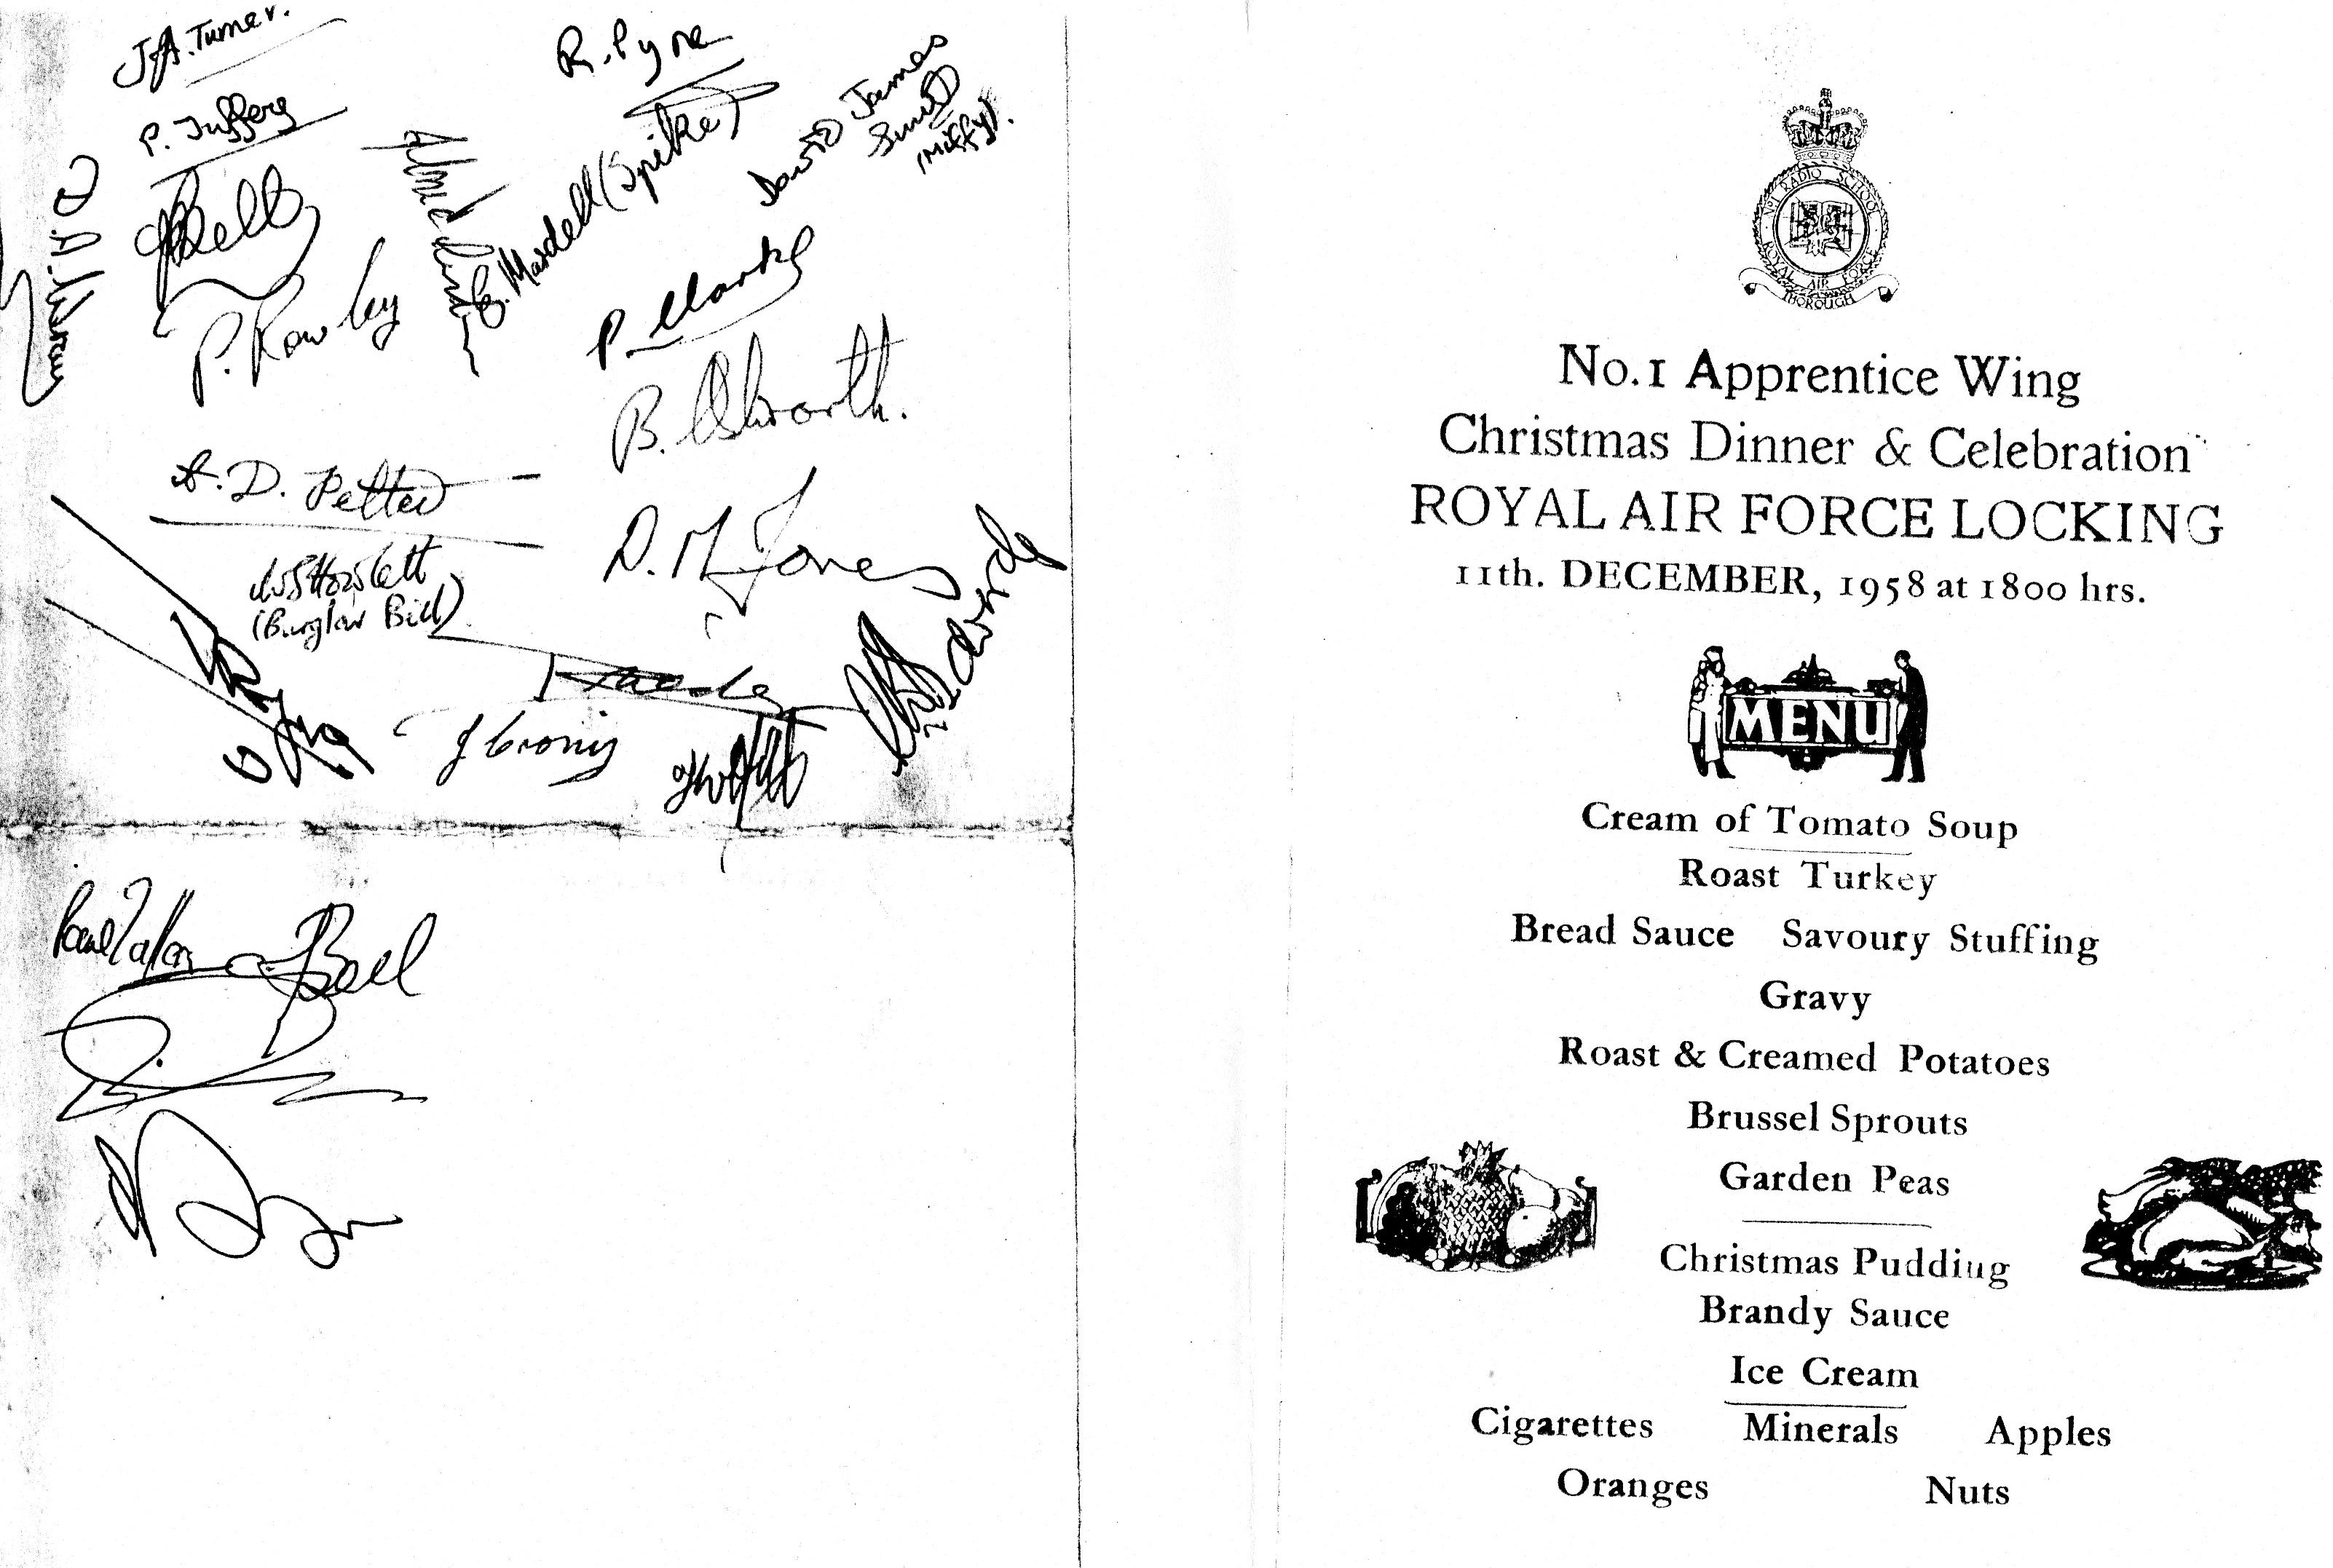 J.A. Turner.
P. Tuffery
P. Rowley
R. Pyne
G. Mardell (Spike)
David James
Smith
(Miffy).
P. Clarke
B. Ashworth.
A. D. Petter
Howlett
(Burglar Bill)
D. M. Jones
Edwards
J Cronin
Bell
No. 1 RADIO SCHOOL
ROYAL AIR FORCE
THOROUGH
No. 1 Apprentice Wing
Christmas Dinner & Celebration
ROYAL AIR FORCE LOCKING
11th. DECEMBER, 1958 at 1800 hrs.
MENU
Cream of Tomato Soup
Roast Turkey
Bread Sauce Savoury Stuffing
Gravy
Roast & Creamed Potatoes
Brussel Sprouts
Garden Peas
Christmas Pudding
Brandy Sauce
Ice Cream
Cigarettes Minerals Apples
Oranges Nuts